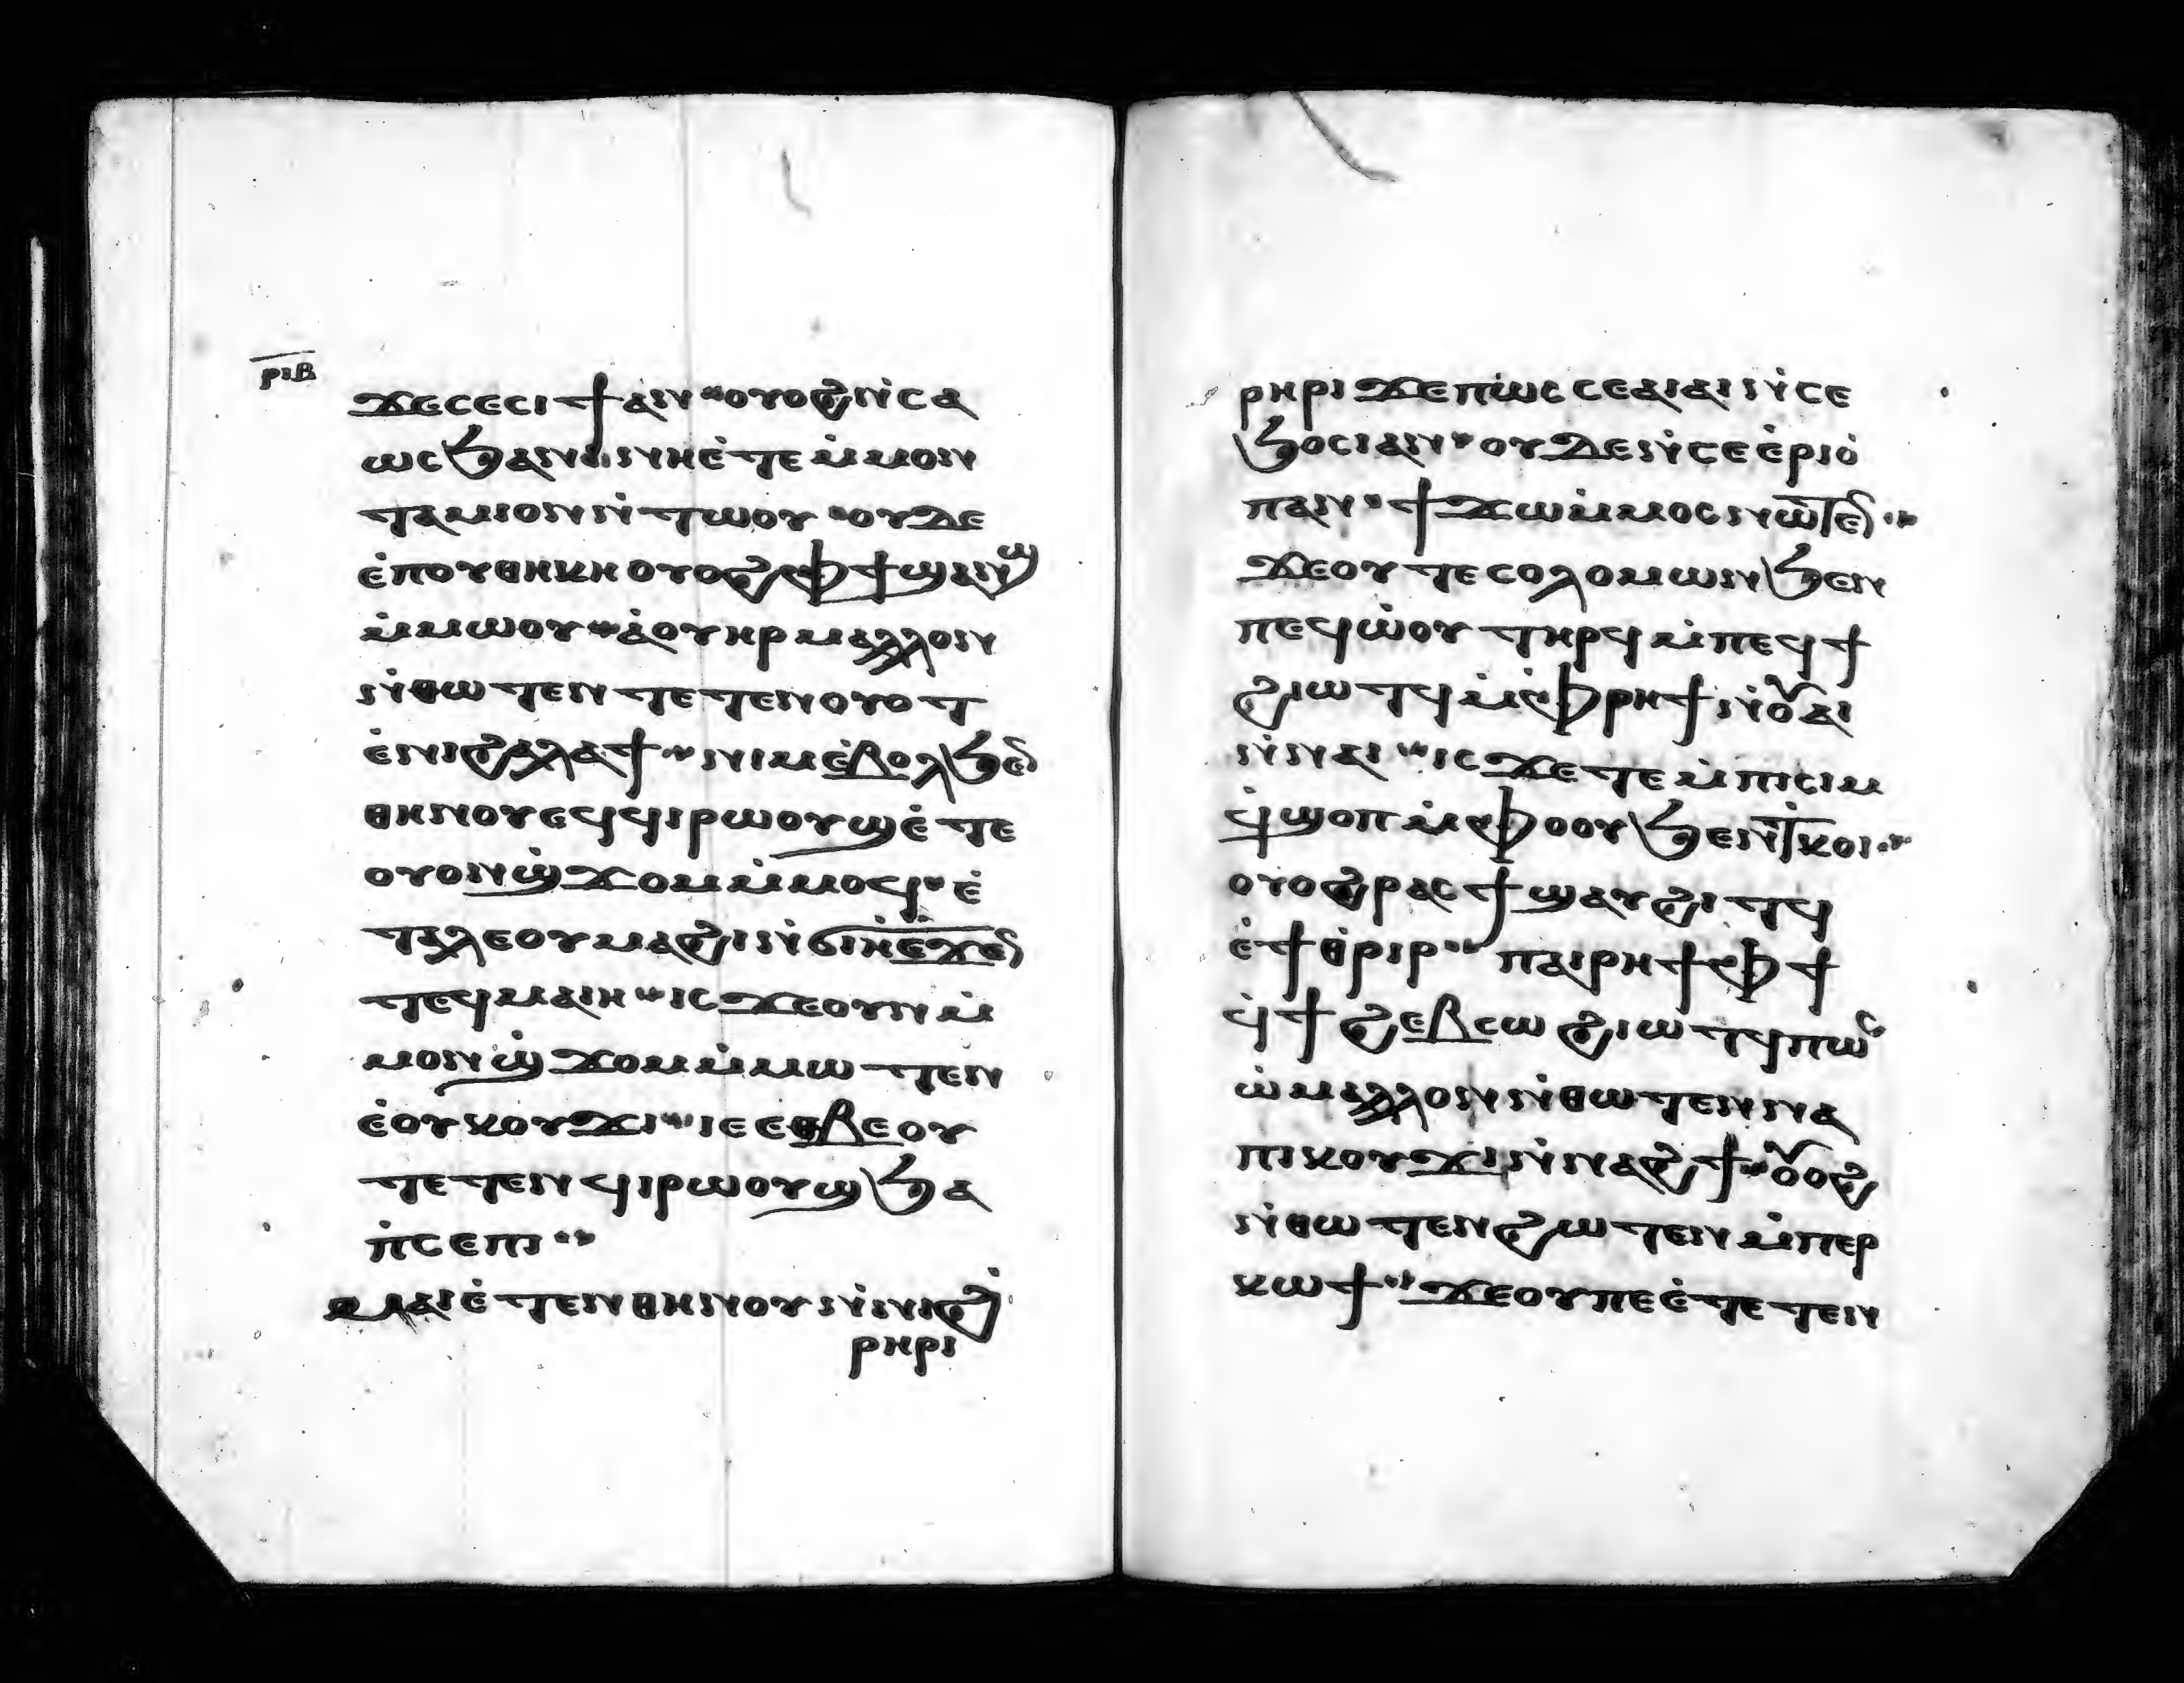 ⲣⲓⲃ
ϫⲉⲥⲉⲥⲓϯⲁⲛ ⲟⲩⲟϩⲛ̇ⲥⲁ
ⲱⲥϧⲁⲛ ⲛⲏⲉ̇ⲧⲉⲙ̇ⲙⲟⲛ
ⲧⲁⲙⲓⲟⲛⲛ̇ⲧⲱⲟⲩ ⲟⲩⲇⲉ
ⲉ̇ⲡⲟⲩⲑⲏⲕⲏ ⲟⲩⲟϩⲫϯϣⲁⲛϣ
ⲙ̇ⲙⲱⲟⲩ ⲁ̇ⲟⲩⲏⲣ ⲙⲁⲗⲗⲟⲛ
ⲛ̇ⲑⲱⲧⲉⲛ ⲧⲉⲧⲉⲛⲟⲩⲟⲧ
ⲉ̇ⲛⲓϩⲁⲗⲁϯ ⲛⲓⲙⲉ̇ⲃⲟⲗϧⲉ̅
ⲑⲏⲛⲟⲩⲉϥϥⲓⲣⲱⲟⲩϣⲉ̇ⲧⲉ
ⲟⲩⲟⲛϣ̇ϫⲟⲙⲙ̇ⲙⲟϥ ⲉ̇
ⲧⲁⲗⲉⲟⲩⲙⲁϩⲓⲛ̇ϭⲓⲏⲉ̇ϫⲉ̅
ⲧⲉϥⲙⲁⲓⲏ ⲓⲥϫⲉⲟⲩⲛ ⲙ̇
ⲙⲟⲛϣ̇ϫⲟⲙⲙ̇ⲙⲱⲧⲉⲛ
ⲉ̇ⲟⲩⲕⲟⲩϫⲓ ⲓⲉ ⲉⲑⲃⲉⲟⲩ
ⲧⲉⲧⲉⲛϥⲓⲣⲱⲟⲩϣϧⲁ
ⲡ̇ⲥⲉⲡⲓ
ⲙⲁⲓⲉ̇ⲧⲉⲛⲑⲏⲛⲟⲩⲛ̇ⲛⲓϩ̇
ⲣⲏⲣⲓ
ⲣⲏⲣⲓ ϫⲉⲡⲱ̇ⲥ ⲥⲉⲁⲓⲁⲓ ⲛ̇ⲥⲉ
ϧⲟⲥⲓⲁⲛ ⲟⲩⲇⲉⲛ̇ⲥⲉⲉ̇ⲣⲓⲟ̇
ⲡⲁⲛ ϯϫⲱⲙ̇ⲙⲟⲥⲛⲱ̅ⲧⲉ̅
ϫⲉⲟⲩⲧⲉⲥⲟⲗⲟⲙⲱⲛϧⲉⲛ
ⲡⲉϥⲱ̇ⲟⲩ ⲧⲏⲣϥ ⲙ̇ⲡⲉϥϯ
ϩⲓⲱⲧϥ ⲙ̇ⲫⲣⲏϯⲛ̇ⲟⲩⲁⲓ
ⲛ̇ⲛⲁⲓ ⲓⲥϫⲉⲧⲉ ⲙ̇ⲡⲓⲥⲓⲙ
ϥ̇ϣⲟⲡ ⲙ̇ⲫⲟⲟⲩϧⲉⲛⲧ̇ⲕⲟⲓ
ⲟⲩⲟϩⲣⲁⲥϯϣⲁⲩϩⲓⲧϥ
ⲉ̇ϯⲑ̇ⲣⲓⲣ ⲡⲁⲓⲣⲏϯⲫϯ
ϥ̇ϯϩⲉⲃⲥⲱ ϩⲓⲱⲧϥⲡⲱⲥ
ⲱ̇ⲙⲁⲗⲗⲟⲛⲛ̇ⲑⲱⲧⲉⲛⲛⲁ
ⲡⲓⲕⲟⲩϫⲓⲛ̇ⲛⲁϩϯ ⲟⲩⲟϩ
ⲛ̇ⲑⲱⲧⲉⲛϩⲱⲧⲉⲛ ⲙ̇ⲡⲉⲣ
ⲕⲱϯ ϫⲉⲟⲩⲡⲉⲉ̇ⲧⲉⲧⲉⲛ